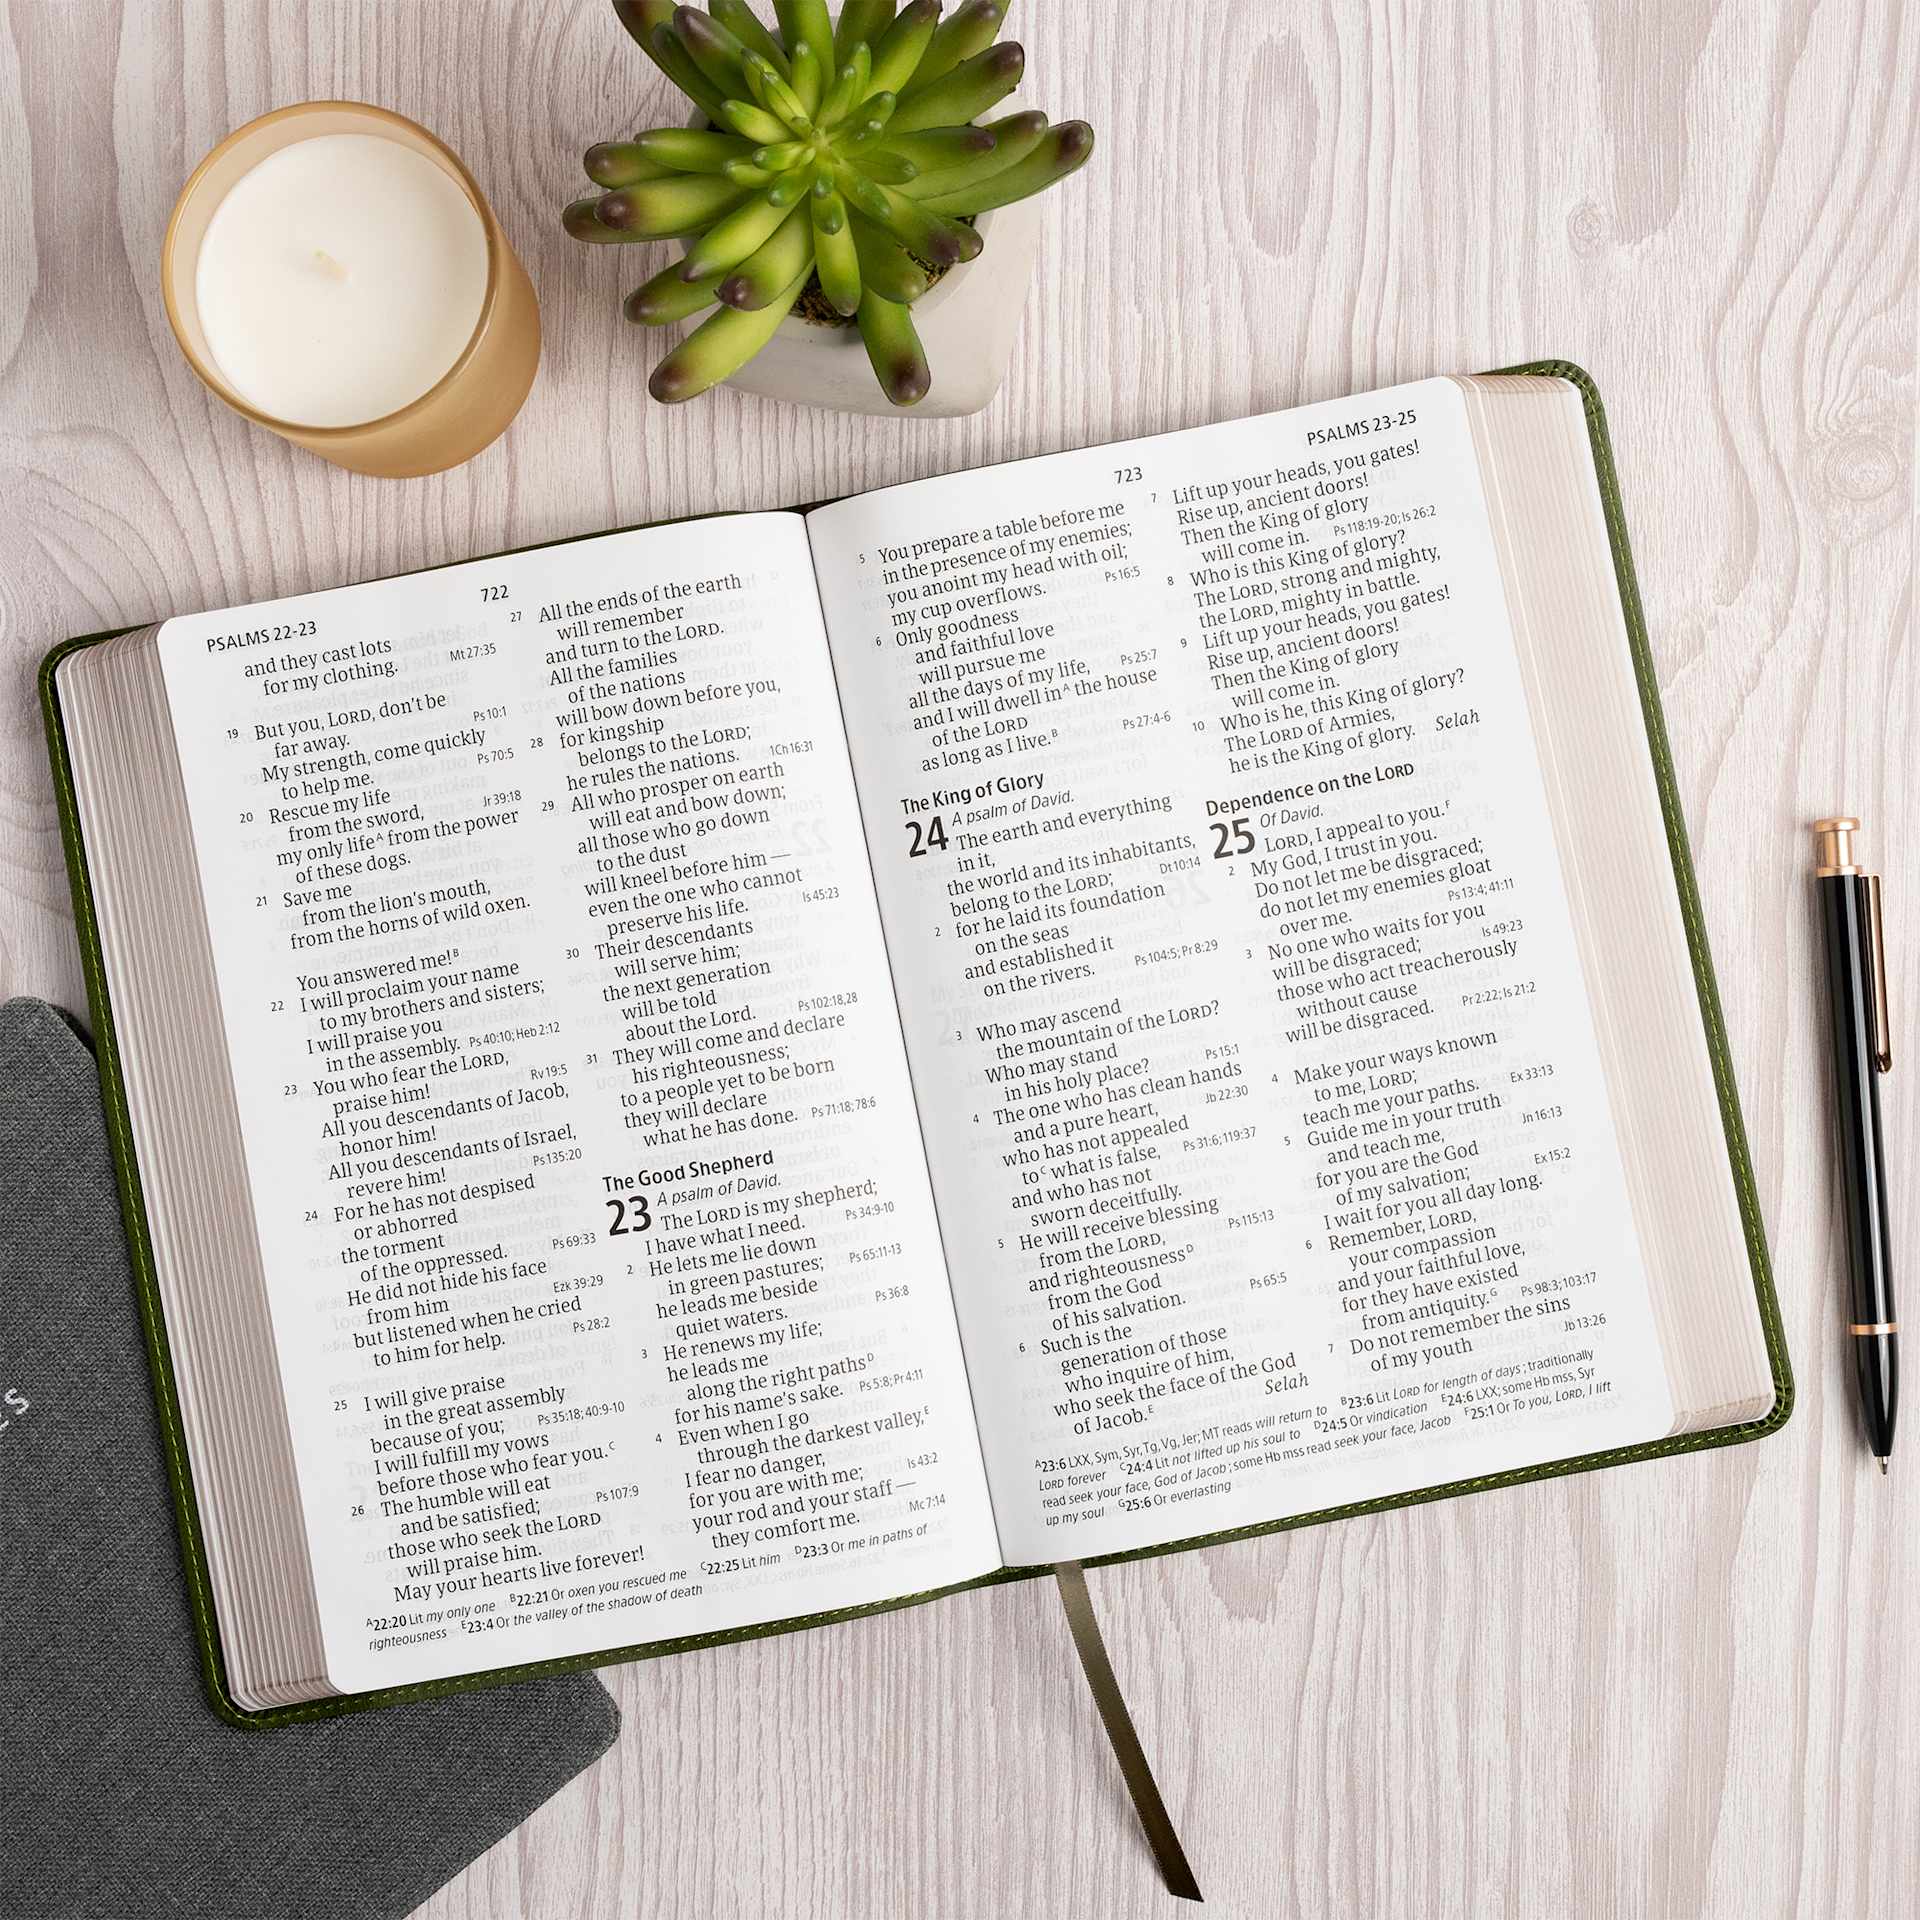 722
PSALMS 22-23
and they cast lots
for my clothing. Mt 27:35
19 But you, LORD, don't be
far away. Ps 10:1
My strength, come quickly
to help me. Ps 70:5
20 Rescue my life
from the sword, Jr 39:18
my only lifeᴬ from the power
of these dogs.
21 Save me
from the lion's mouth,
from the horns of wild oxen.
You answered me!ᴮ
22 I will proclaim your name
to my brothers and sisters;
I will praise you
in the assembly. Ps 40:10; Heb 2:12
23 You who fear the LORD,
praise him! Rv 19:5
All you descendants of Jacob,
honor him!
All you descendants of Israel,
revere him! Ps 135:20
24 For he has not despised
or abhorred
the torment
of the oppressed. Ps 69:33
He did not hide his face
from him Ezk 39:29
but listened when he cried
to him for help. Ps 28:2
25 I will give praise
in the great assembly
because of you; Ps 35:18; 40:9-10
I will fulfill my vows
before those who fear you.ᶜ
26 The humble will eat
and be satisfied; Ps 107:9
those who seek the LORD
will praise him.
May your hearts live forever!
27 All the ends of the earth
will remember
and turn to the LORD.
All the families
of the nations
will bow down before you,
28 for kingship
belongs to the LORD;
he rules the nations. 1Ch 16:31
29 All who prosper on earth
will eat and bow down;
all those who go down
to the dust
will kneel before him —
even the one who cannot
preserve his life. Is 45:23
30 Their descendants
will serve him;
the next generation
will be told
about the Lord. Ps 102:18,28
31 They will come and declare
his righteousness;
to a people yet to be born
they will declare
what he has done. Ps 71:18; 78:6
The Good Shepherd
23 A psalm of David.
The LORD is my shepherd;
I have what I need. Ps 34:9-10
2 He lets me lie down
in green pastures; Ps 65:11-13
he leads me beside
quiet waters. Ps 36:8
3 He renews my life;
he leads me
along the right pathsᴰ
for his name's sake. Ps 5:8; Pr 4:11
4 Even when I go
through the darkest valley,ᴱ
I fear no danger,
for you are with me; Is 43:2
your rod and your staff —
they comfort me. Mc 7:14
ᴬ22:20 Lit my only one ᴮ22:21 Or oxen you rescued me ᶜ22:25 Lit him ᴰ23:3 Or me in paths of
righteousness ᴱ23:4 Or the valley of the shadow of death
723
PSALMS 23-25
5 You prepare a table before me
in the presence of my enemies;
you anoint my head with oil;
my cup overflows. Ps 16:5
6 Only goodness
and faithful love
will pursue me
all the days of my life, Ps 25:7
and I will dwell inᴬ the house
of the LORD
as long as I live.ᴮ Ps 27:4-6
The King of Glory
24 A psalm of David.
The earth and everything
in it,
the world and its inhabitants,
belong to the LORD; Dt 10:14
2 for he laid its foundation
on the seas
and established it
on the rivers. Ps 104:5; Pr 8:29
3 Who may ascend
the mountain of the LORD?
Who may stand
in his holy place? Ps 15:1
4 The one who has clean hands
and a pure heart, Jb 22:30
who has not appealed
toᶜ what is false, Ps 31:6; 119:37
and who has not
sworn deceitfully.
5 He will receive blessing
from the LORD, Ps 115:13
and righteousnessᴰ
from the God
of his salvation. Ps 65:5
6 Such is the
generation of those
who inquire of him,
who seek the face of the God
of Jacob.ᴱ Selah
7 Lift up your heads, you gates!
Rise up, ancient doors!
Then the King of glory
will come in. Ps 118:19-20; Is 26:2
8 Who is this King of glory?
The LORD, strong and mighty,
the LORD, mighty in battle.
9 Lift up your heads, you gates!
Rise up, ancient doors!
Then the King of glory
will come in.
10 Who is he, this King of glory?
The LORD of Armies,
he is the King of glory. Selah
Dependence on the LORD
25 Of David.
LORD, I appeal to you.ꟳ
2 My God, I trust in you.
Do not let me be disgraced;
do not let my enemies gloat
over me. Ps 13:4; 41:11
3 No one who waits for you
will be disgraced; Is 49:23
those who act treacherously
without cause
will be disgraced. Pr 2:22; Is 21:2
4 Make your ways known
to me, LORD;
teach me your paths. Ex 33:13
5 Guide me in your truth
and teach me, Jn 16:13
for you are the God
of my salvation; Ex 15:2
I wait for you all day long.
6 Remember, LORD,
your compassion
and your faithful love,
for they have existed
from antiquity.ᴳ Ps 98:3; 103:17
7 Do not remember the sins
of my youth Jb 13:26
ᴬ23:6 LXX, Sym, Syr, Tg, Vg, Jer; MT reads will return to ᴮ23:6 Lit LORD for length of days; traditionally
LORD forever ᶜ24:4 Lit not lifted up his soul to ᴰ24:5 Or vindication ᴱ24:6 LXX; some Hb mss, Syr
read seek your face, God of Jacob; some Hb mss read seek your face, Jacob ꟳ25:1 Or To you, LORD, I lift
up my soul ᴳ25:6 Or everlasting